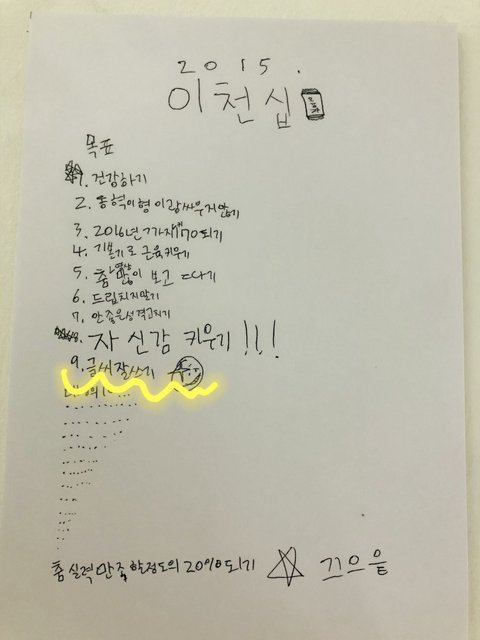 2015.
이천십
목표
1. 건강하기
2. 동혁이형이랑싸우지않기
3. 2016년까지170되기
4. 기본기로 근육키우기
5. 춤영상많이 보고 따기
6. 드립치지말기
7. 안좋은성격고치기
자신감 키우기!!!
9. 글씨잘쓰기
춤 실력 만족할정도의 200%되기 끄으읕